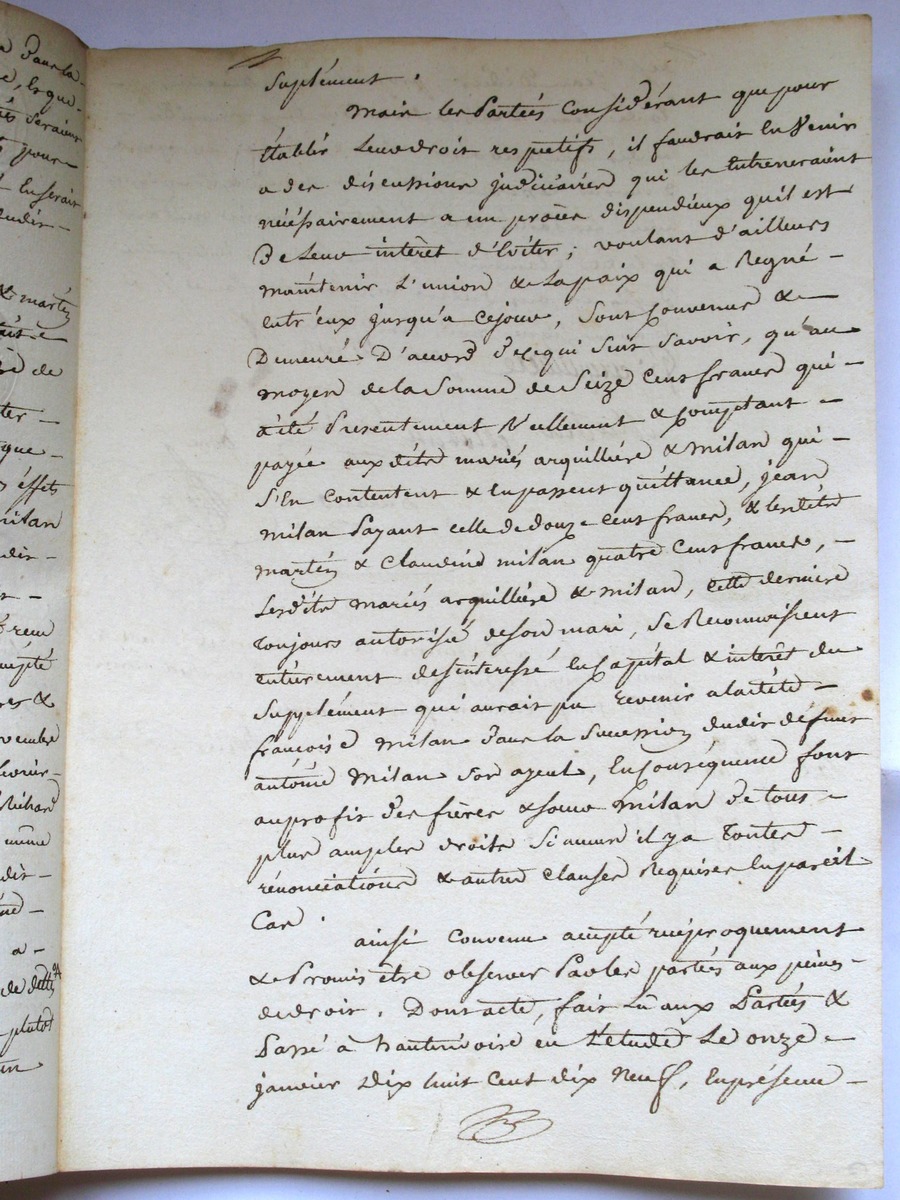 Suplément.
mais les Parties Considérant que pour
établir leurs droit respetifs, il faudrait En Venir
a des discussions judiciaires qui les Entreneraient
nécéssairement a un procès dispendieux qu'il est
De Leur intérêt d'éviter; voulant d'ailleurs
maintenir L'union & La paix qui a Regné -
entr'eux jusqu'a ce jour, Sont Convenus &
Demeuré D'accord De ce qui Suit Savoir, qu'au
moyen de la Somme de Seize Cent francs qui -
a été Presentement Réellement & Comptant -
payée aux dits mariés arquilliére & milan qui -
S'En Contentent & En passent quittance, jean
milan Payant celle de douze Cent francs, & lesdits
martin & Claudine milan quatre Cent francs, -
Lesdits mariés arquilliére & milan, cette derniere
Toujours autorisée de son mari, Se Reconnoissent
entièrement desintéressé En Capital & intérêt du
Supplément qui aurait pu revenir a la dite -
françoise milan Dans la Succession dudit défunt
antoine Milan son ayeul, En Conséquence font
au profit Des frères & Soeur Milan De tous -
plus amples droits Si aucun il y a Toutes -
rénonciations & autres Clauses Requises En pareil
Cas.
ainsi Convenu accepté réciproquement
& Promis être observer Par les parties aux peines -
de droit. Dont acte, fait Lû aux Parties &
Passé à hauterivoire en L'étude Le onze -
janvier Dix huit Cent dix Neuf, En présence -